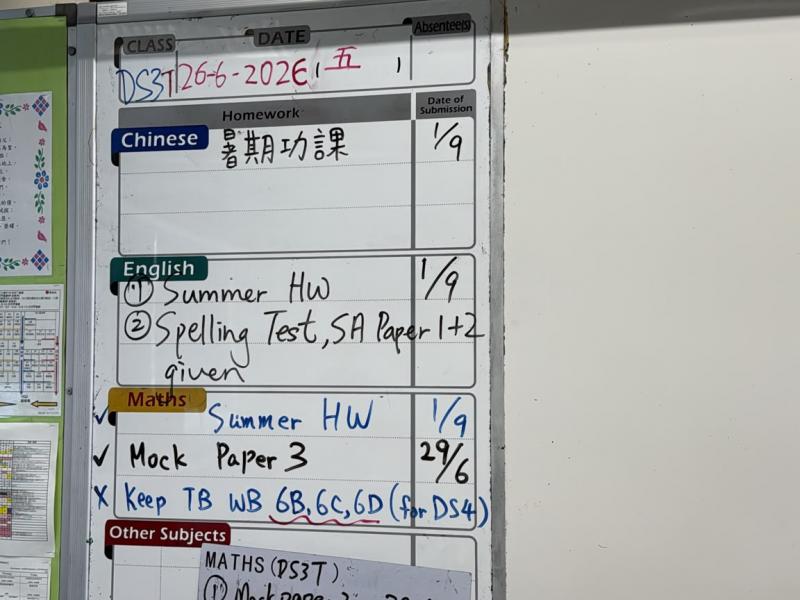 CLASS DATE Absentee(s)
DS3T 26-6-2026 (五)
Homework Date of Submission
Chinese 暑期功課 1/9
English
① Summer HW 1/9
② Spelling Test, SA Paper 1+2
given
Maths
✓ Summer HW 1/9
✓ Mock Paper 3 29/6
X Keep TB WB 6B, 6C, 6D (for DS4)
Other Subjects
MATHS (DS3T)
① Mock paper